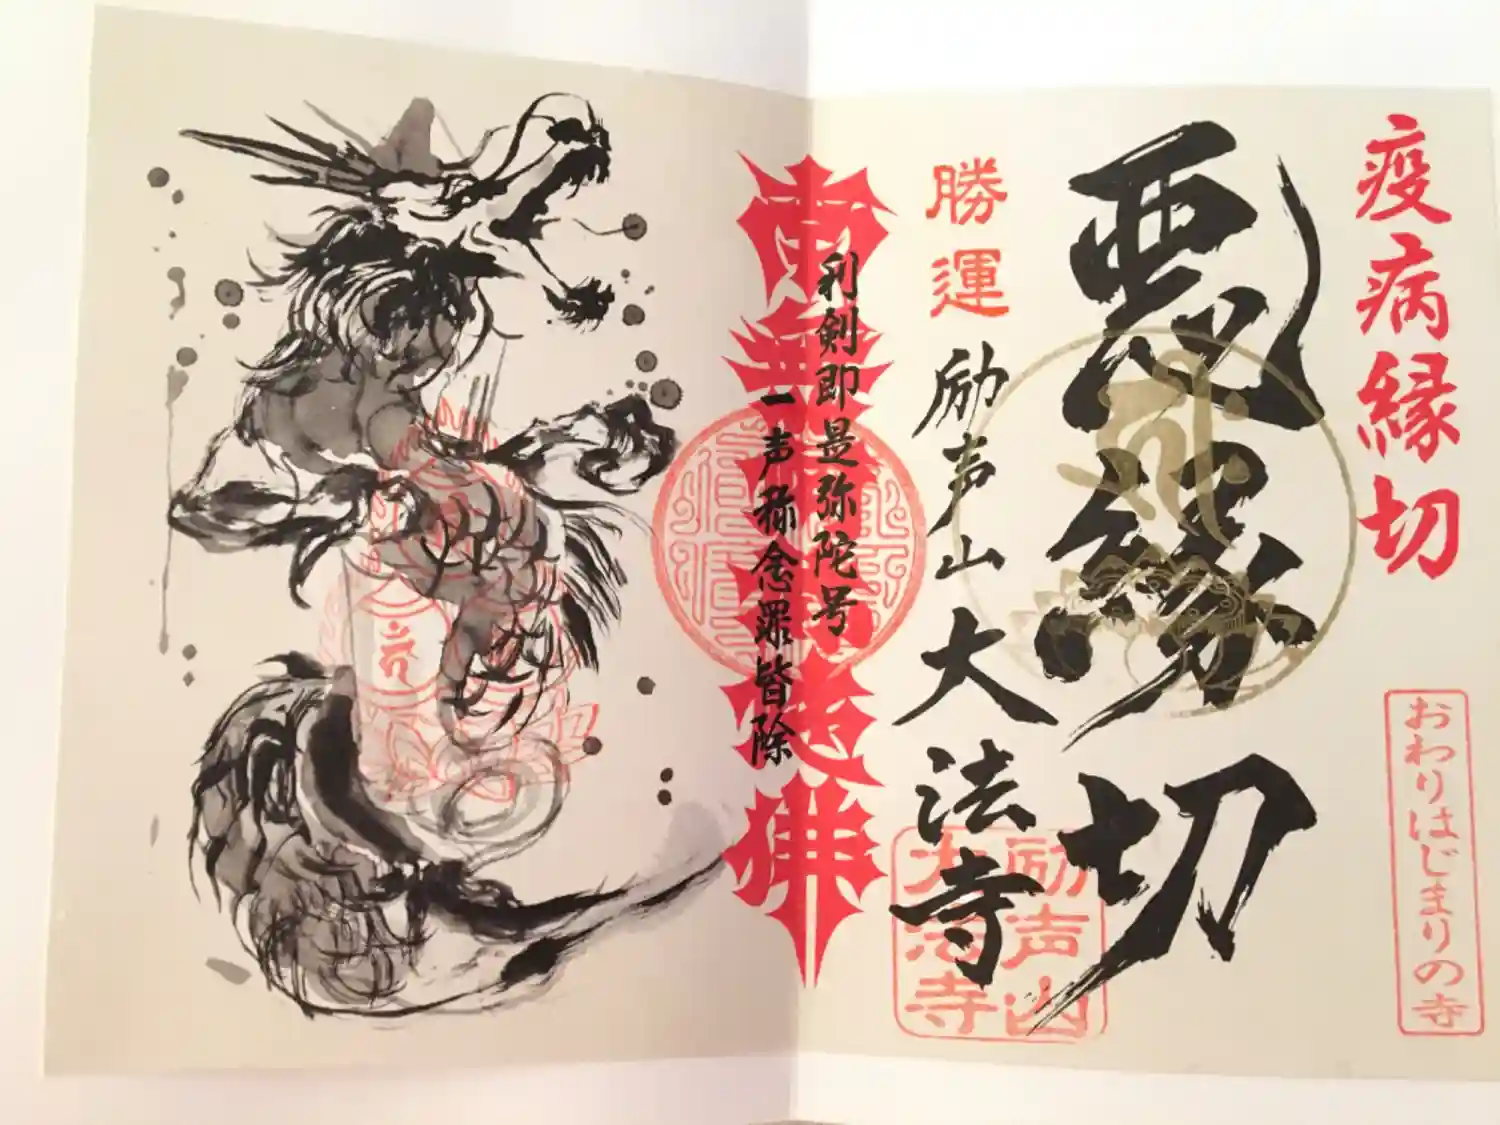 疫病縁切
おわりはじまりの寺
悪縁切
勝運
励声山大法寺
励声山
大法寺
利剣即是弥陀号
一声称念罪皆除
南無阿弥陀佛